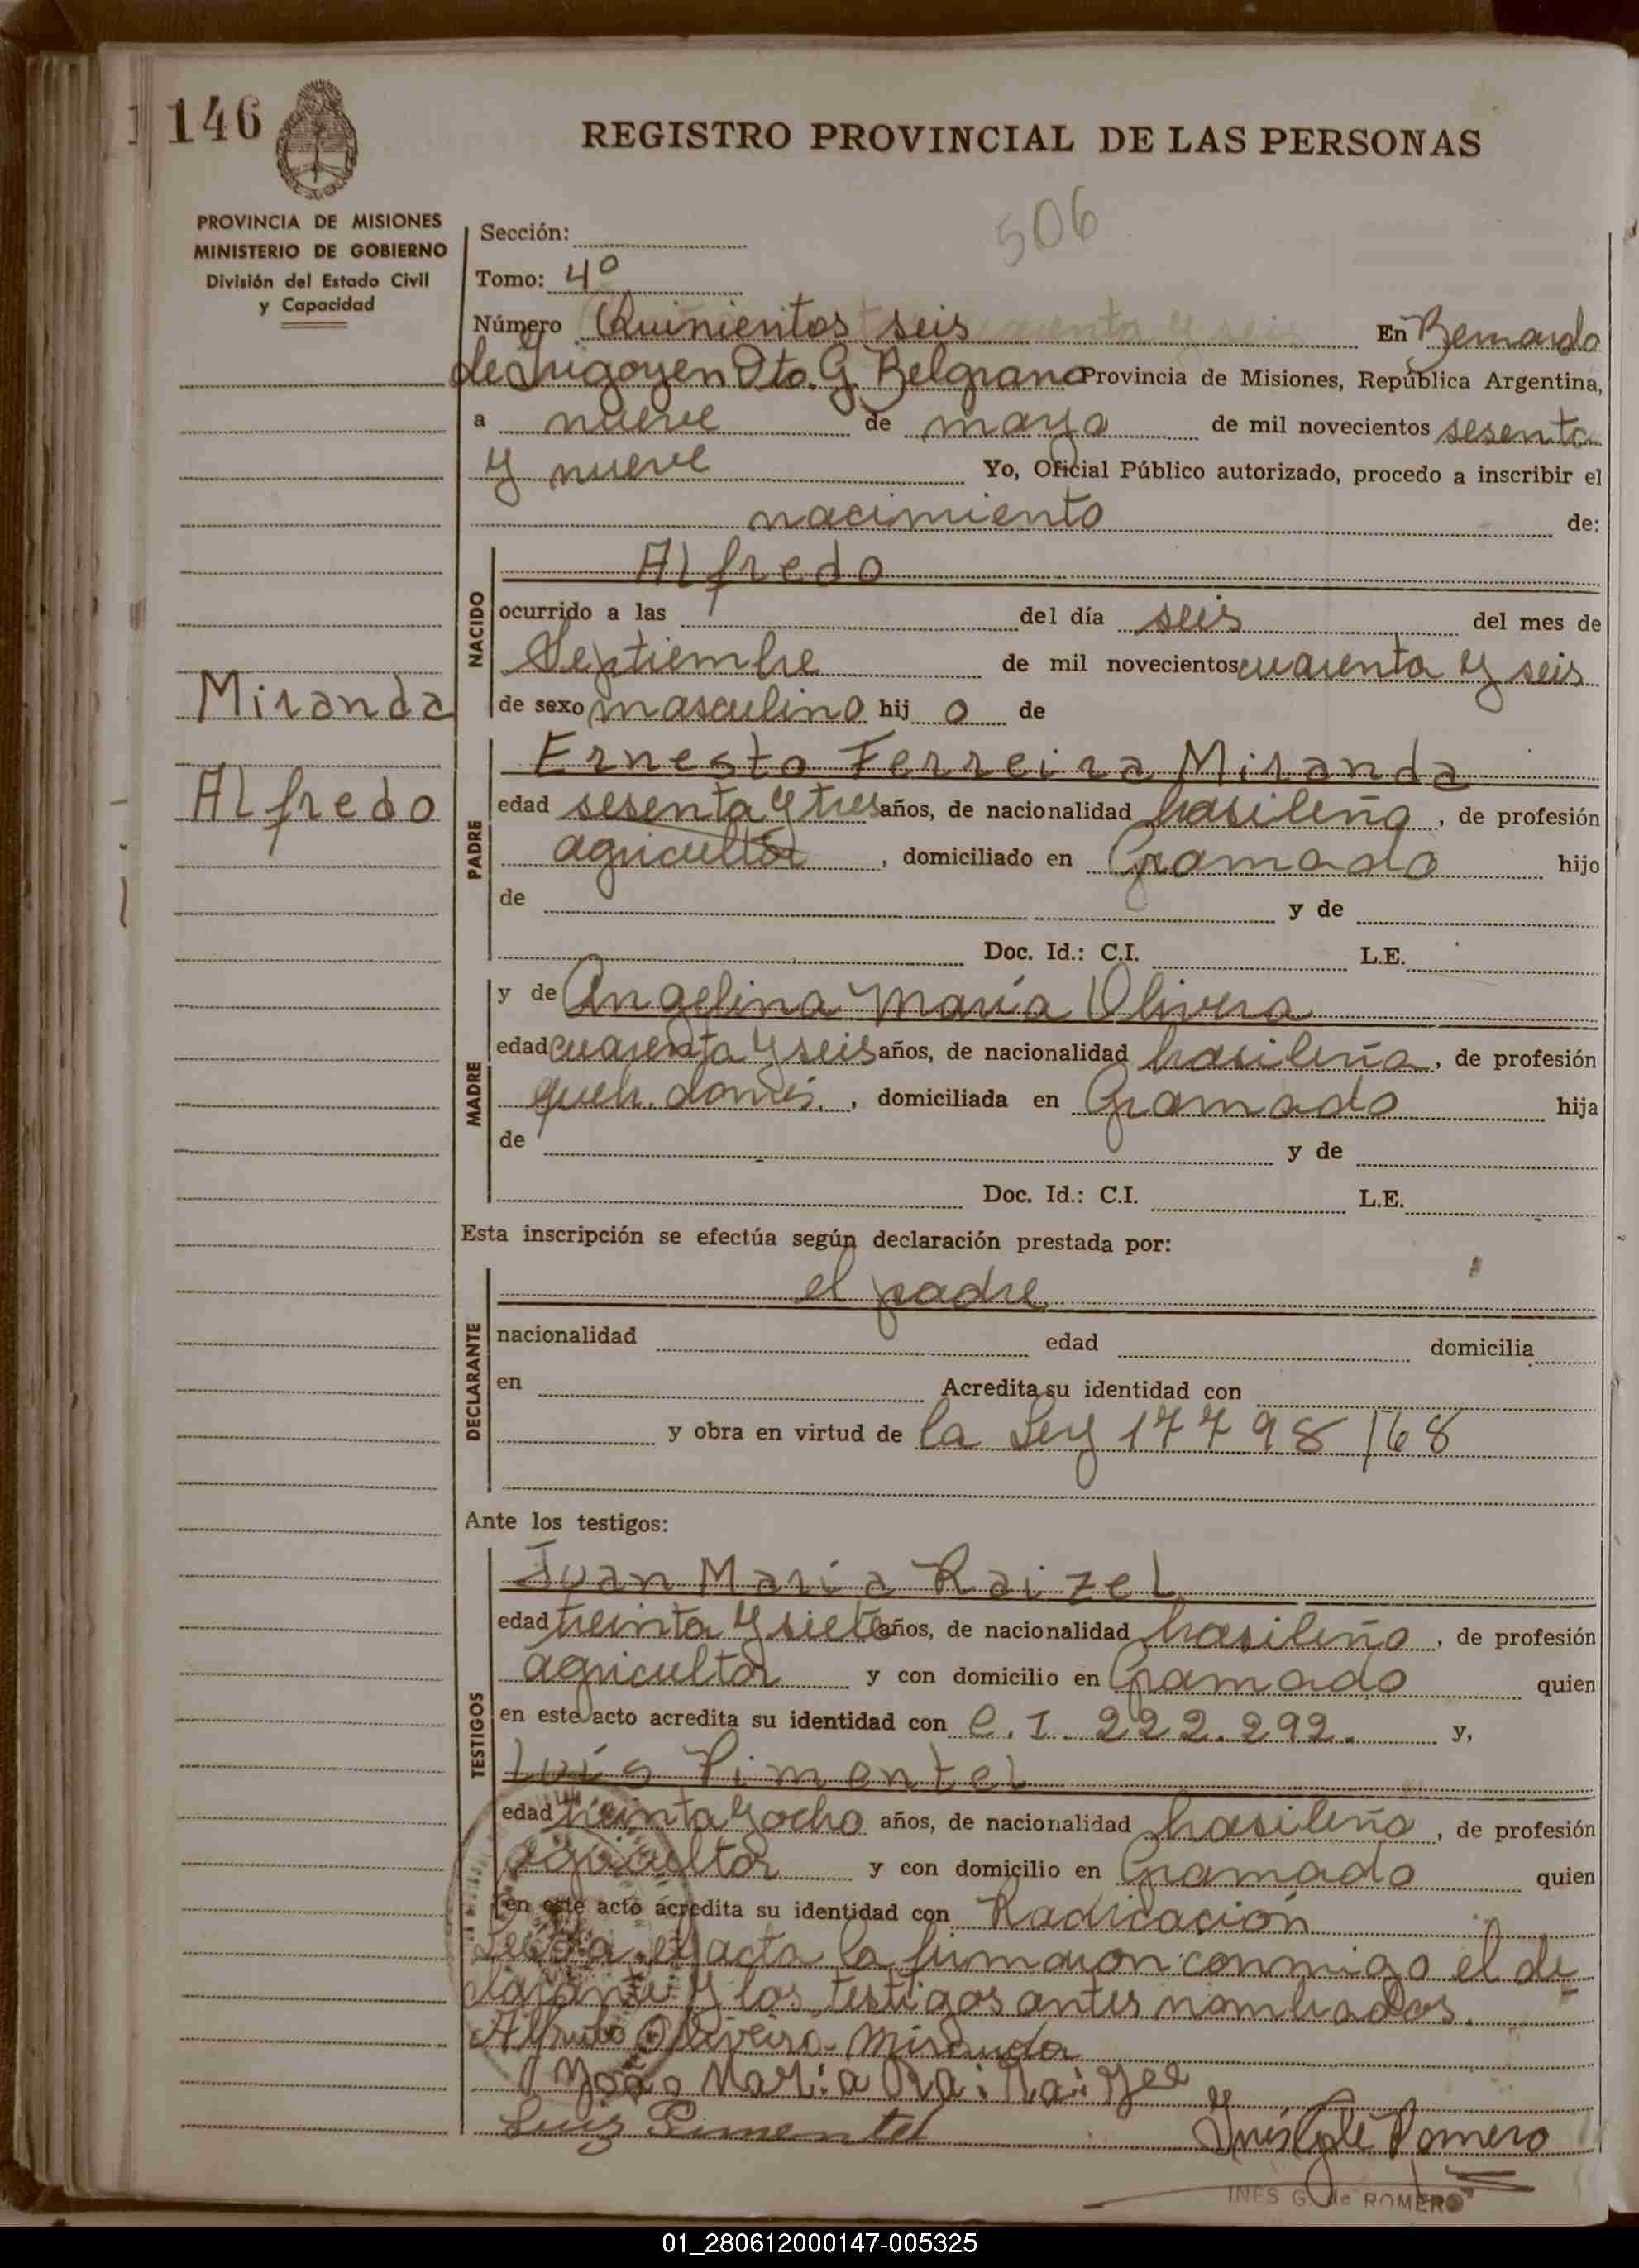 146
REGISTRO PROVINCIAL DE LAS PERSONAS
506
PROVINCIA DE MISIONES
MINISTERIO DE GOBIERNO
División del Estado Civil
y Capacidad
Sección:
Tomo: 4º
Número Quinientos seis En Bernardo
de Irigoyen Dto. G. Belgrano Provincia de Misiones, República Argentina,
a nueve de mayo de mil novecientos sesenta
y nueve Yo, Oficial Público autorizado, procedo a inscribir el
nacimiento de:
NACIDO
Alfredo
ocurrido a las del día seis del mes de
Septiembre de mil novecientos cuarenta y seis
Miranda
de sexo masculino hij o de
Alfredo
PADRE
Ernesto Ferreira Miranda
edad sesenta y tres años, de nacionalidad brasileña, de profesión
agricultor, domiciliado en Gramado hijo
de y de
Doc. Id.: C.I. L.E.
MADRE
y de Angelina María Olivera
edad cuarenta y seis años, de nacionalidad brasileña, de profesión
queh. domés., domiciliada en Gramado hija
de y de
Doc. Id.: C.I. L.E.
Esta inscripción se efectúa según declaración prestada por:
DECLARANTE
el padre
nacionalidad edad domicilia
en Acredita su identidad con
y obra en virtud de la Ley 17798/68
Ante los testigos:
TESTIGOS
Juan María Raizel
edad treinta y siete años, de nacionalidad brasileño, de profesión
agricultor y con domicilio en Gramado quien
en este acto acredita su identidad con C. I. 222.292. y,
Luís Pimentel
edad treinta y ocho años, de nacionalidad brasileño, de profesión
agricultor y con domicilio en Gramado quien
en este acto acredita su identidad con Radicación
Leída el acta la firmaron conmigo el de
clarante y los testigos antes nombrados.
Miranda
Maria
Luiz Pimentel
Romero
INES G. de ROMERO
01_280612000147-005325